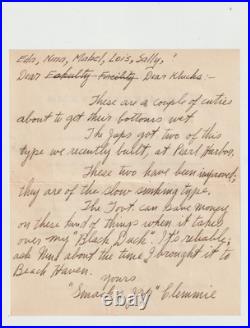 Eds, Nins, Mabel, Lois, Sally,
Dear Eskulty Facility Dear Klucks:-
These are a couple of cuties
about to get their bottoms wet.
The Japs got two of this
type we recently built, at Pearl Harbor.
These two have been improved;
they are of the slow sinking type.
The Govt. can save money
on these kind of things when it takes
over my "Black Duck". It's reliable;
ask about the time I brought it to
Beach Haven.
Yours
"Smack 'em Up" Clemmie